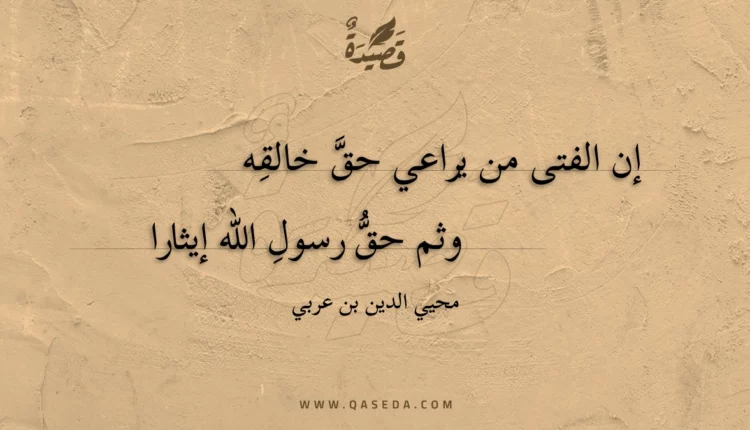 قَصِيْدَةٌ
إن الفتى من يراعي حقَّ خالقِه
وثم حقُّ رسولِ الله إيثارا
محيي الدين بن عربي
WWW.QASEDA.COM